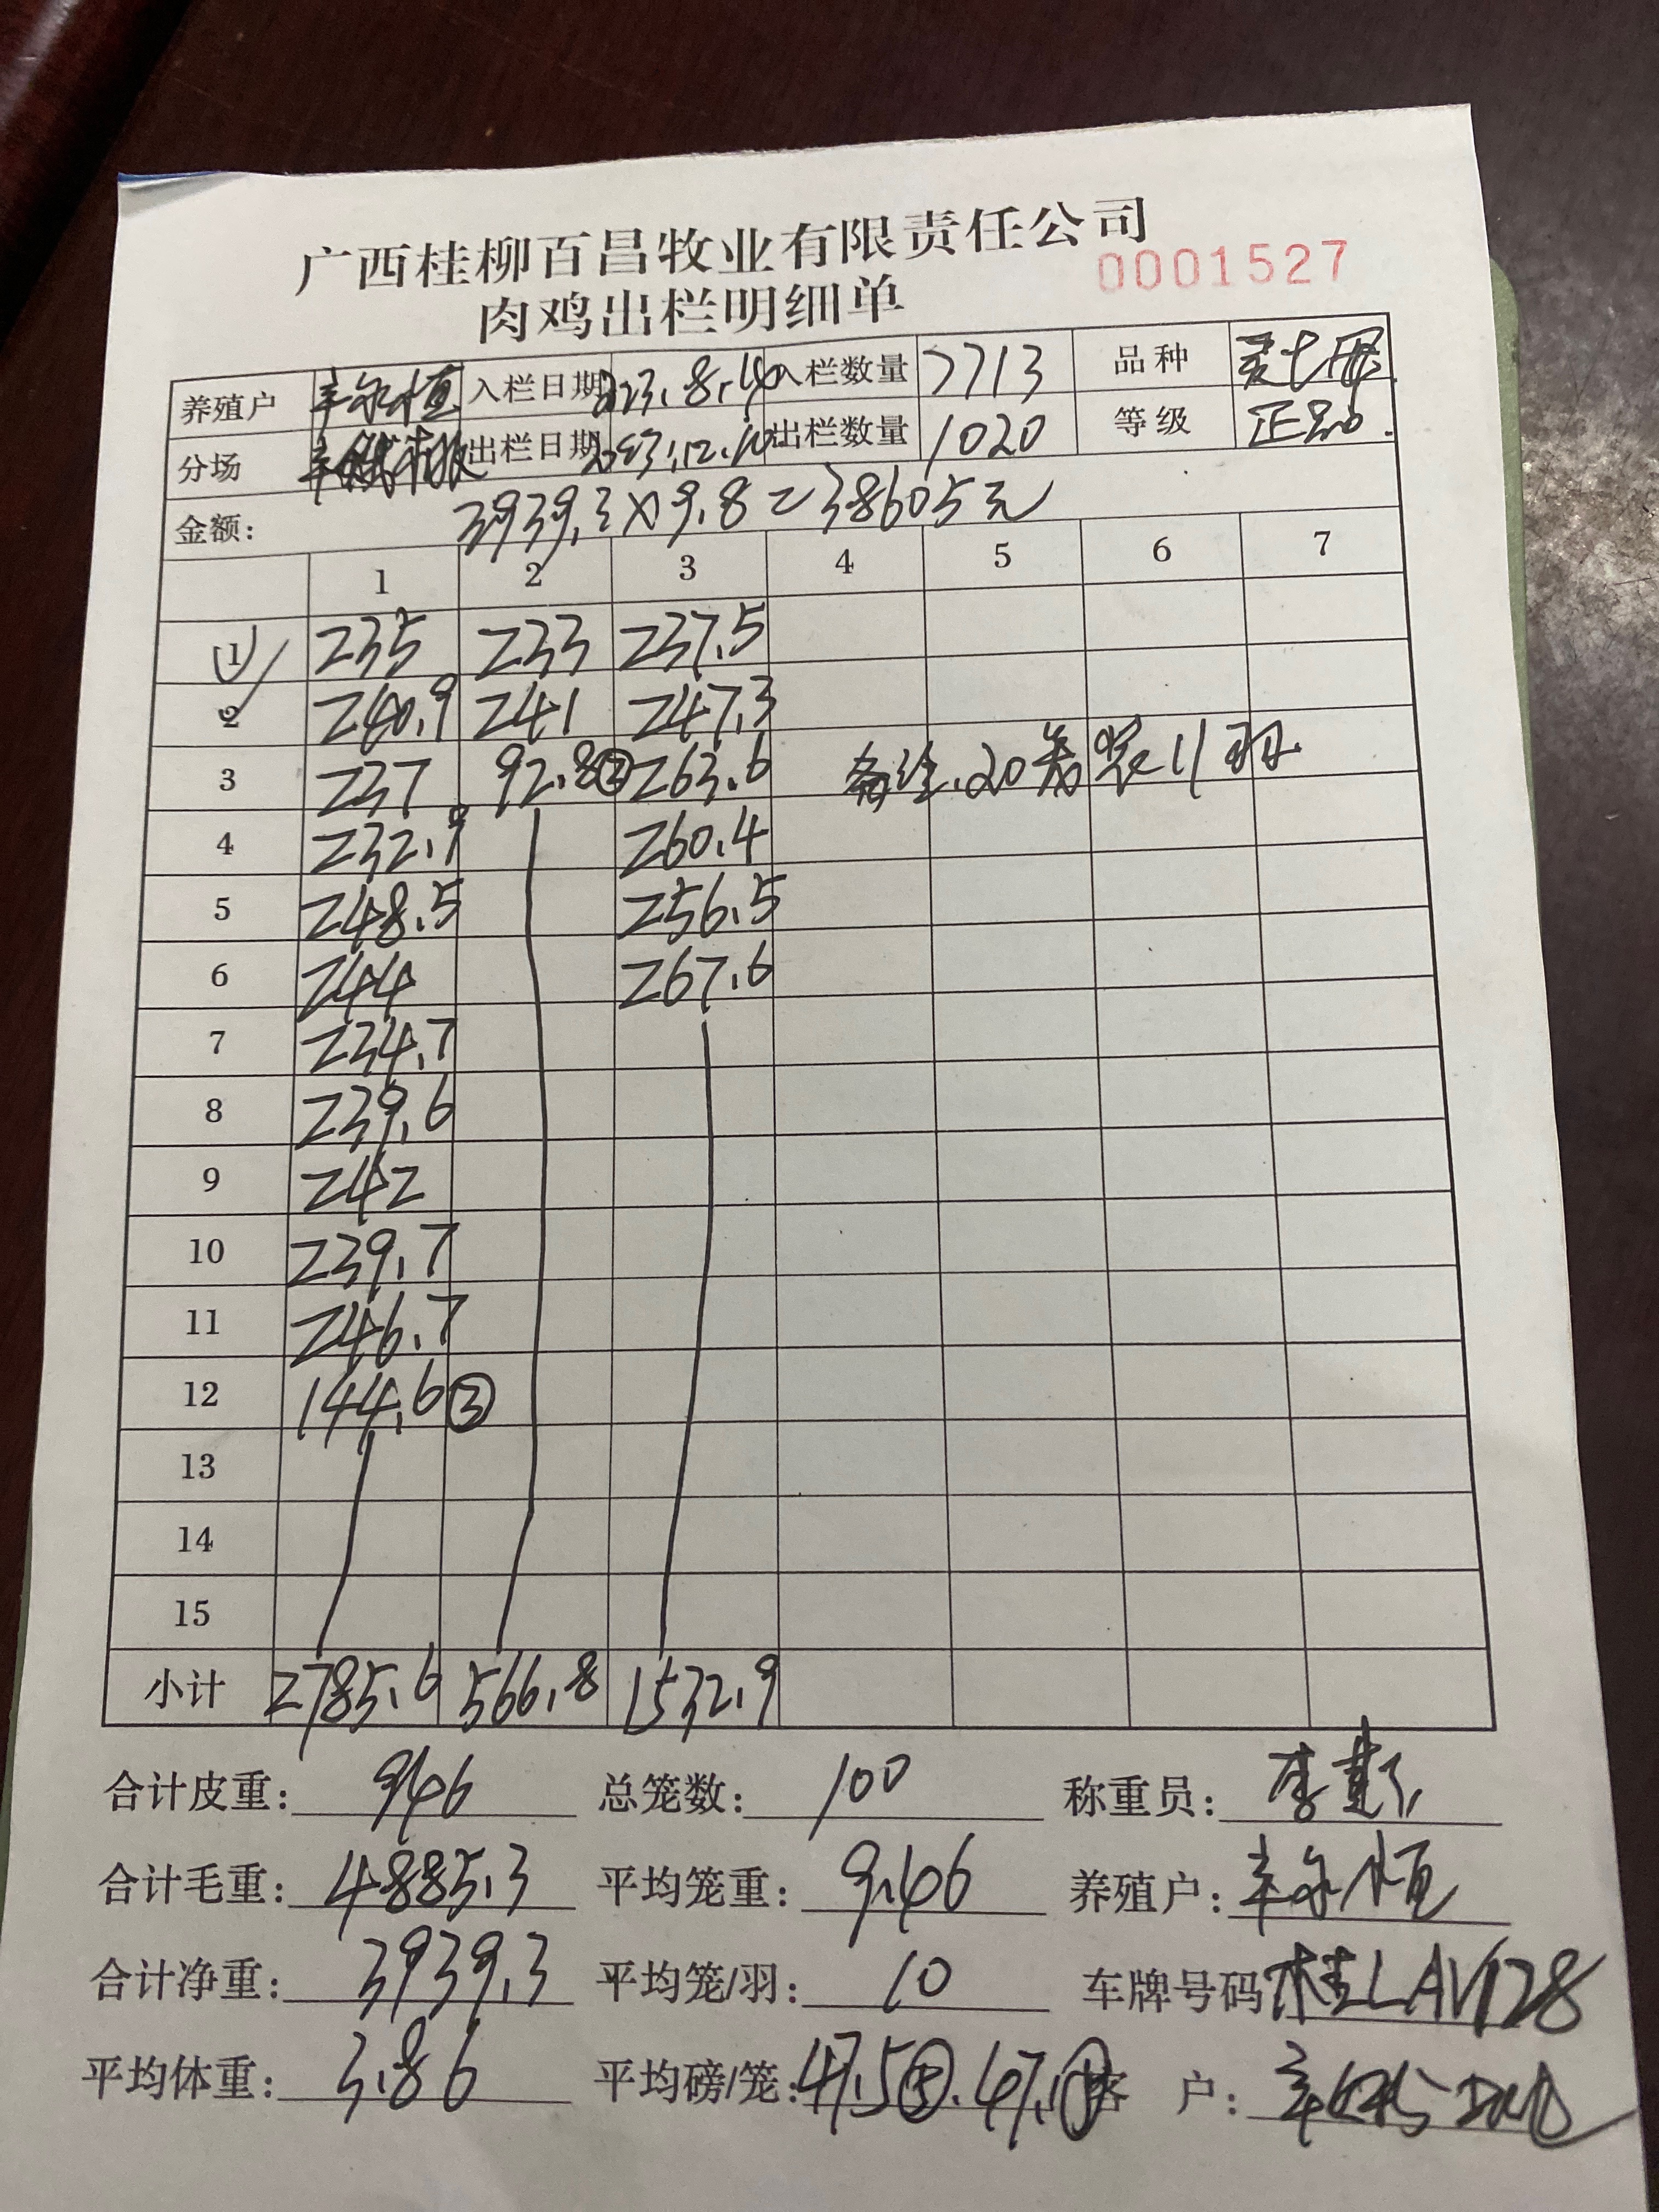 广西桂柳百昌牧业有限责任公司
0001527
肉鸡出栏明细单
养殖户 入栏日期 2023.8.14 入栏数量 7713 品种
分场 出栏日期 2023.12.10 出栏数量 1020 等级 正品.
金额: 3939.3×9.8=38605元
1 2 3 4 5 6 7
1 235 233 237.5
2 240.9 241 247.3
3 237 92.8② 263.6 备注.20笼装11羽.
4 232.9 260.4
5 248.5 256.5
6 244 267.6
7 234.7
8 239.6
9 242
10 239.7
11 246.7
12 144.6③
13
14
15
小计 2785.6 566.8 1532.9
合计皮重: 946 总笼数: 100 称重员: 李
合计毛重: 4885.3 平均笼重: 9.46 养殖户:
合计净重: 3939.3 平均笼/羽: 10 车牌号码 桂LAV128
平均体重: 3.86 平均磅/笼: 47.5⑤.47. 客 户: